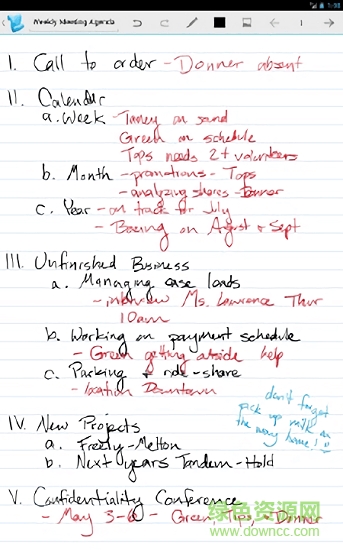 1:98
Weekly Meeting Agenda
1
I. Call to order - Donner absent
II. Calendar
a. Week - Taney on sand
Green on schedule
Tops needs 2+ volunteers
b. Month - promotions - Tops
- analyzing shares - Donner
c. Year - on track for July
- Boeing on August & Sept
III. Unfinished Business
a. Managing case loads
- interview Ms. Lawrence Thur
10am
b. Working on payment schedule
- Green getting outside help
c. Parking & ride-share
- location Downtown
don't forget
pick up milk on
the way home!
IV. New Projects
a. Freely-Melton
b. Next years Tandem-Hold
V. Confidentiality Conference
- May 3-6 - Green, Tips, + Donner
绿色资源网
www.downcc.com